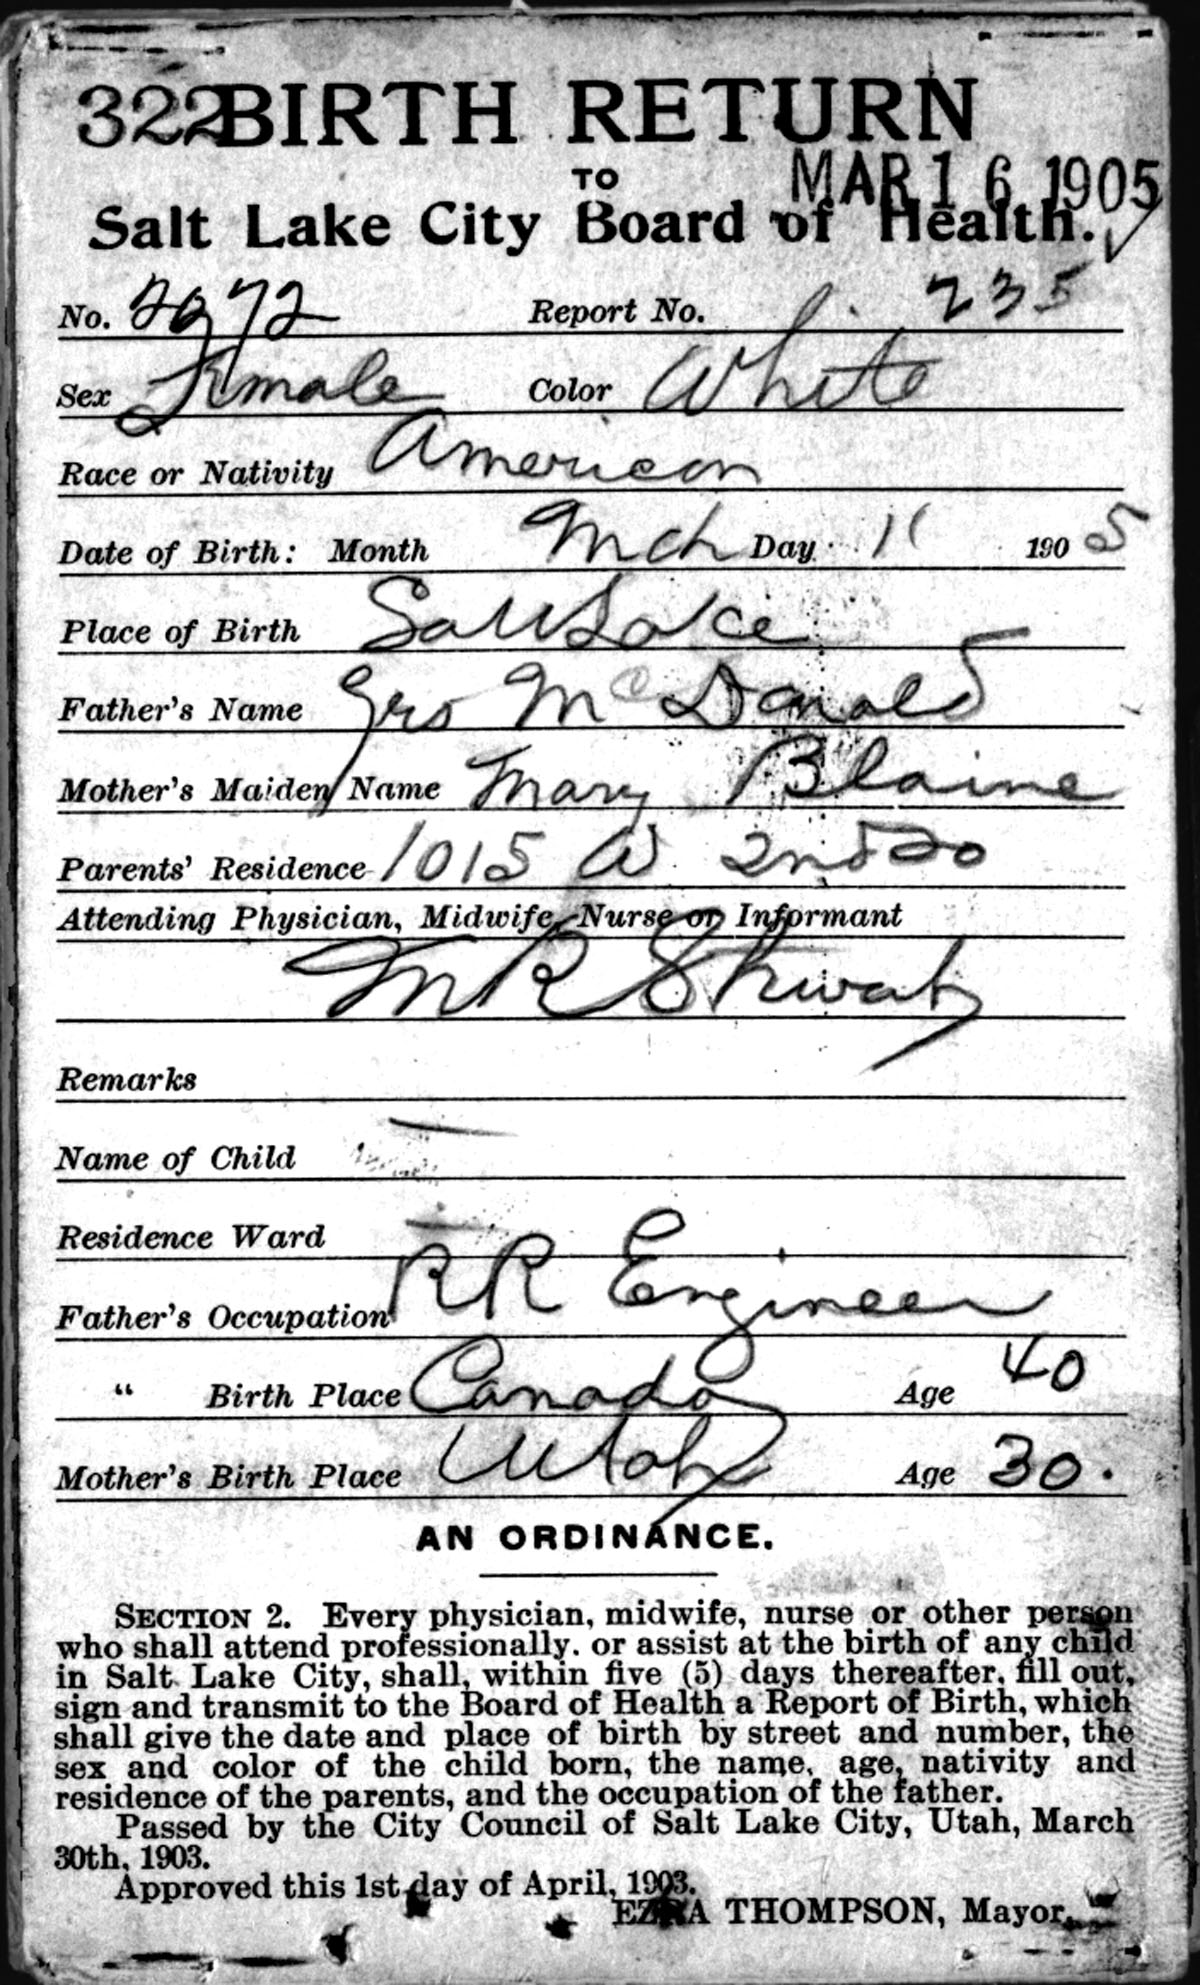 322 BIRTH RETURN
TO
MAR 16 1905
Salt Lake City Board of Health.
No. 2972 Report No. 235
Sex Female Color White
Race or Nativity American
Date of Birth: Month Mch Day 11 1905
Place of Birth Salt Lake
Father's Name Geo McDonald
Mother's Maiden Name Mary Blaine
Parents' Residence 1015 W 2nd So
Attending Physician, Midwife, Nurse or Informant
M R
Remarks
Name of Child
Residence Ward
Father's Occupation RR Engineer
" Birth Place Canada Age 40
Mother's Birth Place Utah Age 30.
AN ORDINANCE.
SECTION 2. Every physician, midwife, nurse or other person
who shall attend professionally. or assist at the birth of any child
in Salt Lake City, shall, within five (5) days thereafter, fill out,
sign and transmit to the Board of Health a Report of Birth, which
shall give the date and place of birth by street and number, the
sex and color of the child born, the name, age, nativity and
residence of the parents, and the occupation of the father.
Passed by the City Council of Salt Lake City, Utah, March
30th, 1903.
Approved this 1st day of April, 1903.
EZRA THOMPSON, Mayor.